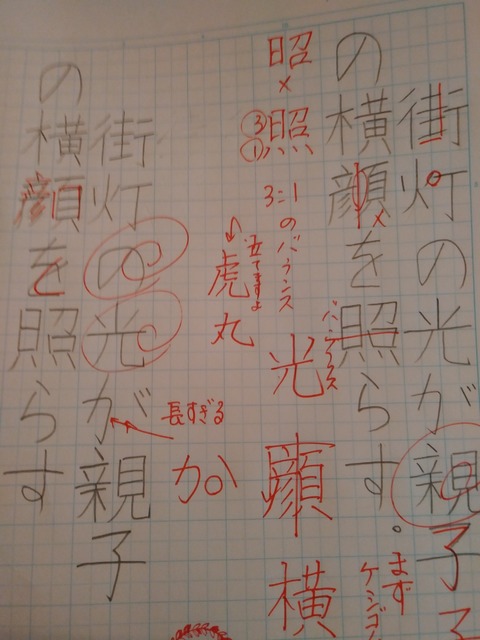 街灯の光が親子
の横顔を照らす。
昭×照
③
①
3:1
のバランス
虎丸
バランス
光
顔
横
まず
ケンゴ
子
街灯の光が親子
の横顔を照らす
長すぎる
か